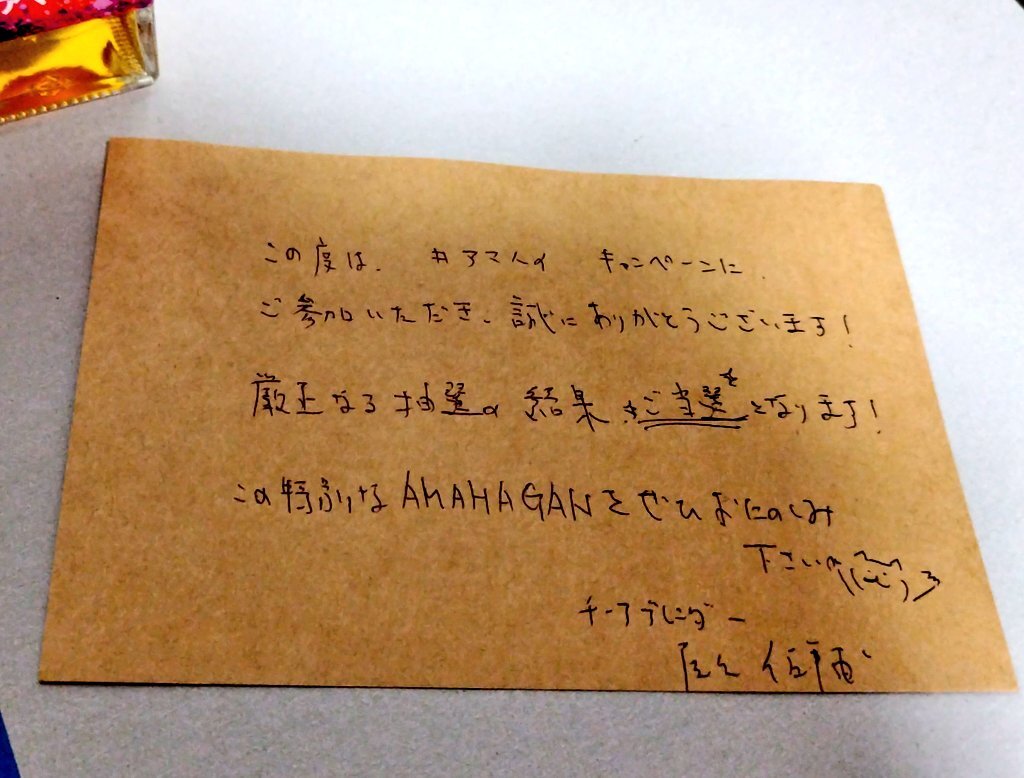 この度は、#アマハガ キャンペーンに
ご参加いただき、誠にありがとうございます!
厳正なる抽選の結果、ご当選となります!
この特別なAMAHAGANをぜひおたのしみ
下さい
チーフブレンダー